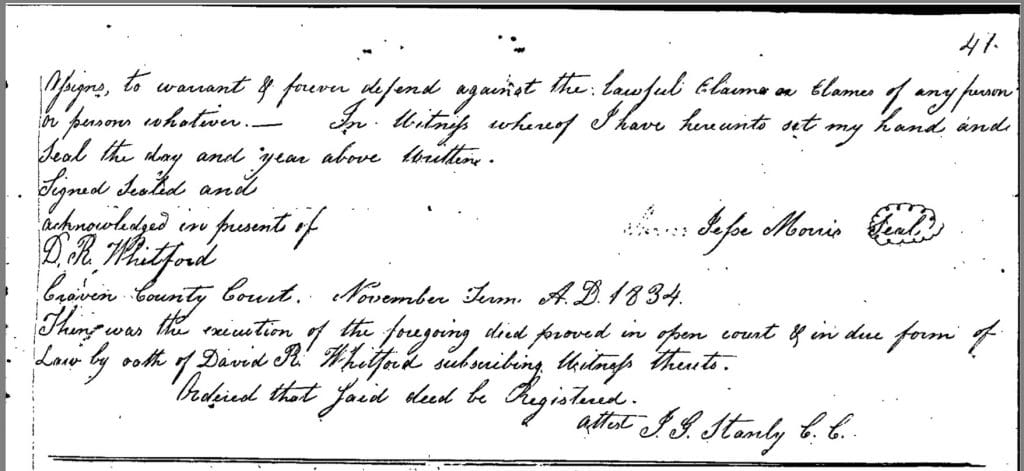 41.
Assigns, to warrant & forever defend against the lawful Claime or Clames of any person
or persons whatever. — In Witness whereof I have hereunto set my hand and
Seal the day and year above Written.
Signed Sealed and
acknowledged in present of
Jesse Morris Seal
D. R. Whitford
Craven County Court. November Term. A.D. 1834.
Then was the execution of the foregoing deed proved in open court & in due form of
Law by oath of David R. Whitford subscribing Witness thereto.
Ordered that said deed be Registered.
attest J. G. Stanly C. C.